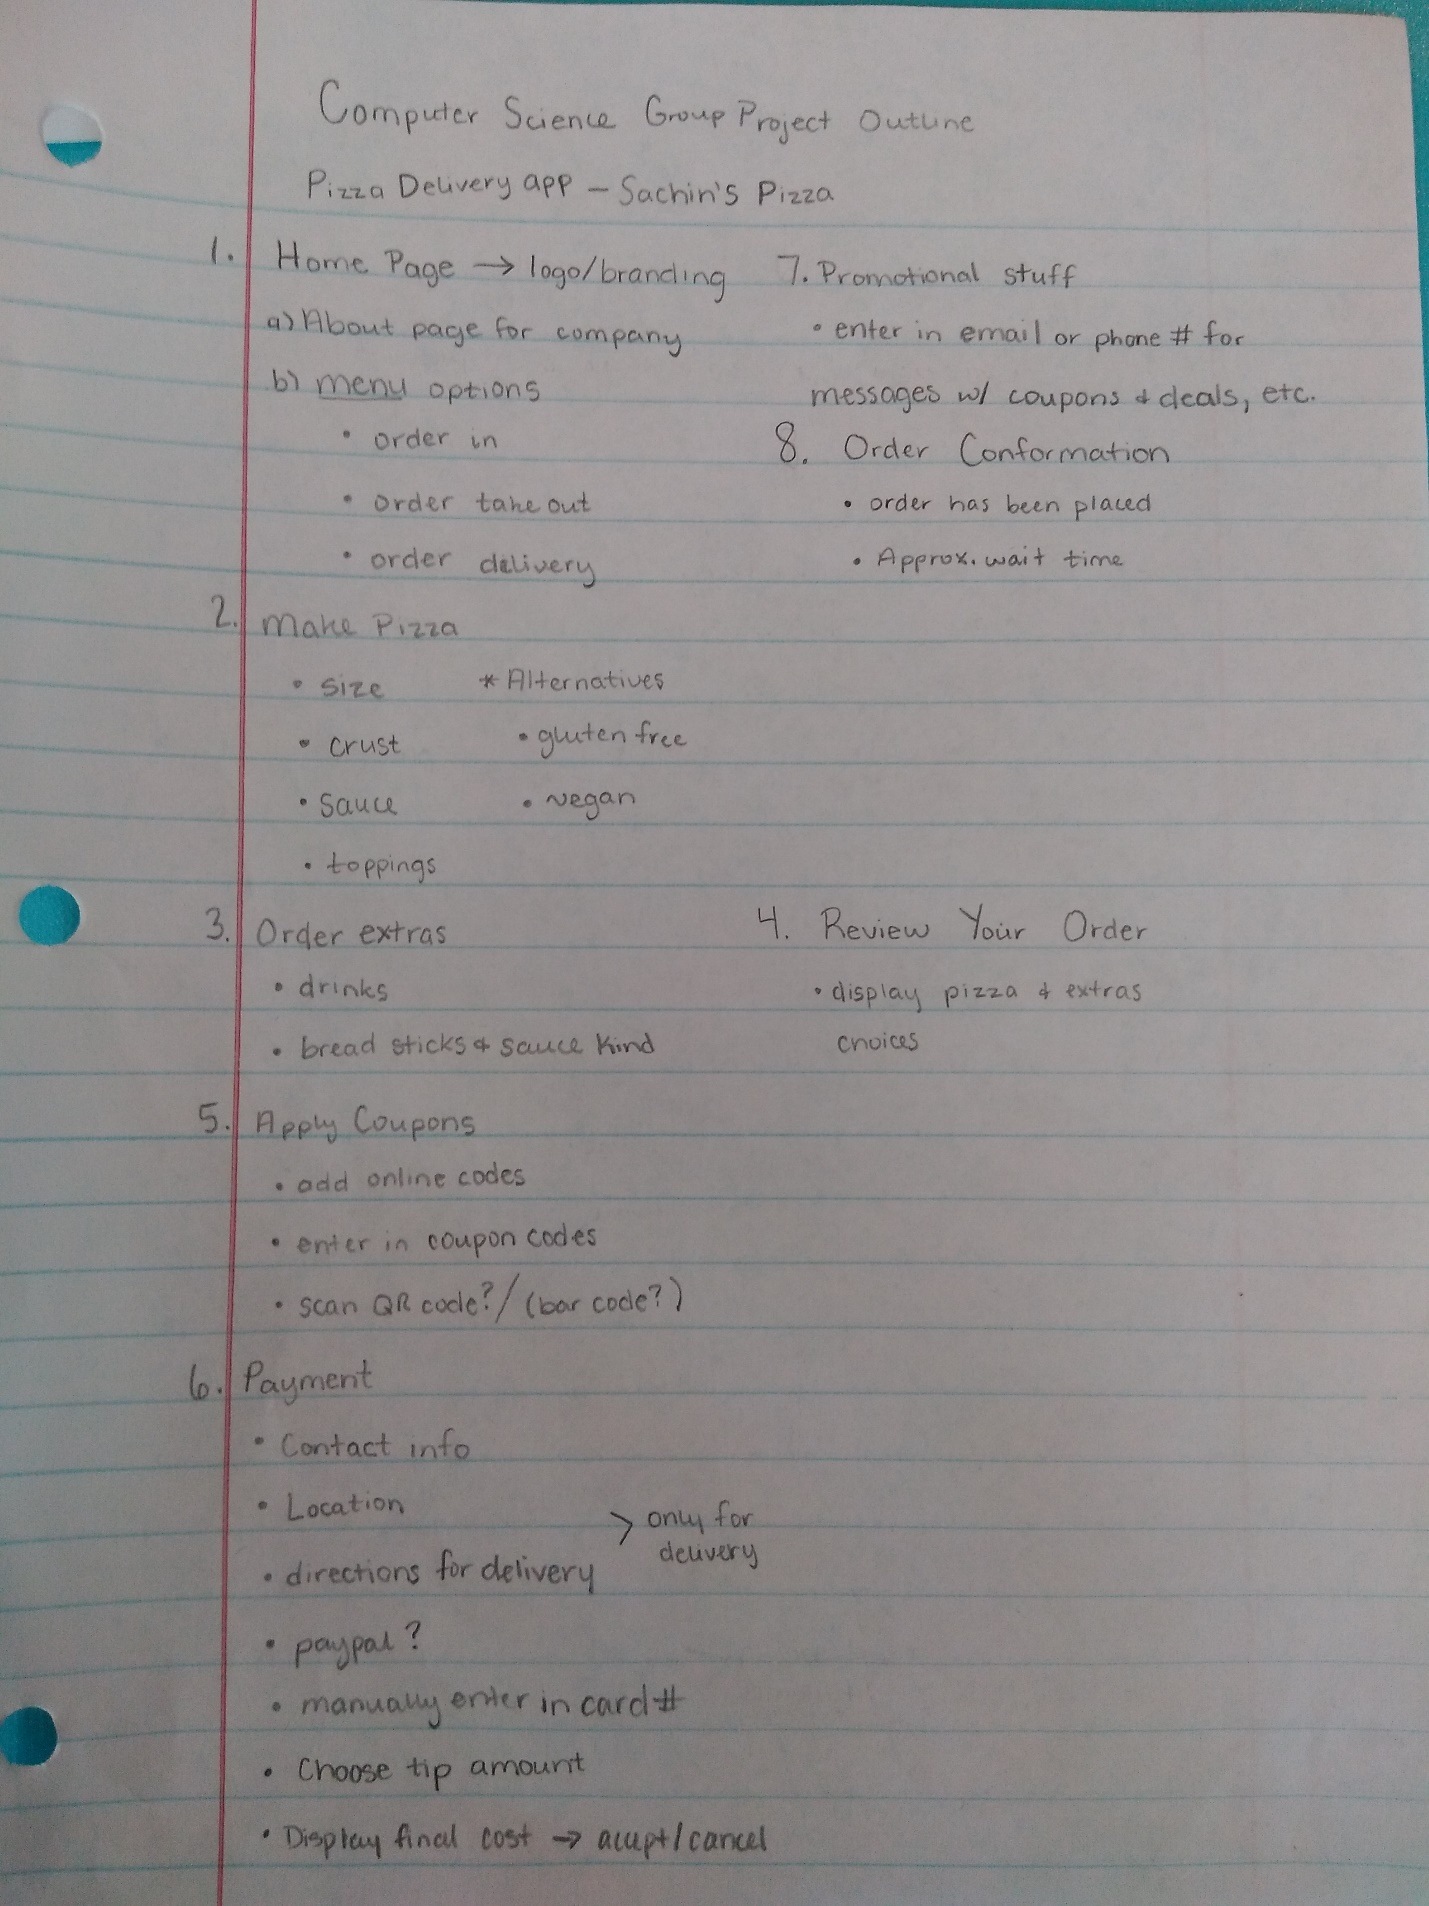 Computer Science Group Project Outline
Pizza Delivery app - Sachin's Pizza
1. Home Page → logo/branding
a) About page for company
b) menu options
• order in
• order take out
• order delivery
2. Make Pizza
• size
• crust
• sauce
• toppings
* Alternatives
• gluten free
• vegan
3. Order extras
• drinks
• bread sticks & sauce kind
4. Review Your Order
• display pizza & extras
choices
5. Apply Coupons
• add online codes
• enter in coupon codes
• scan QR code?/(bar code?)
6. Payment
• Contact info
• Location
• directions for delivery
> only for
delivery
• paypal?
• manually enter in card #
• Choose tip amount
• Display final cost → accept/cancel
7. Promotional stuff
• enter in email or phone # for
messages w/ coupons & deals, etc.
8. Order Conformation
• order has been placed
• Approx. wait time